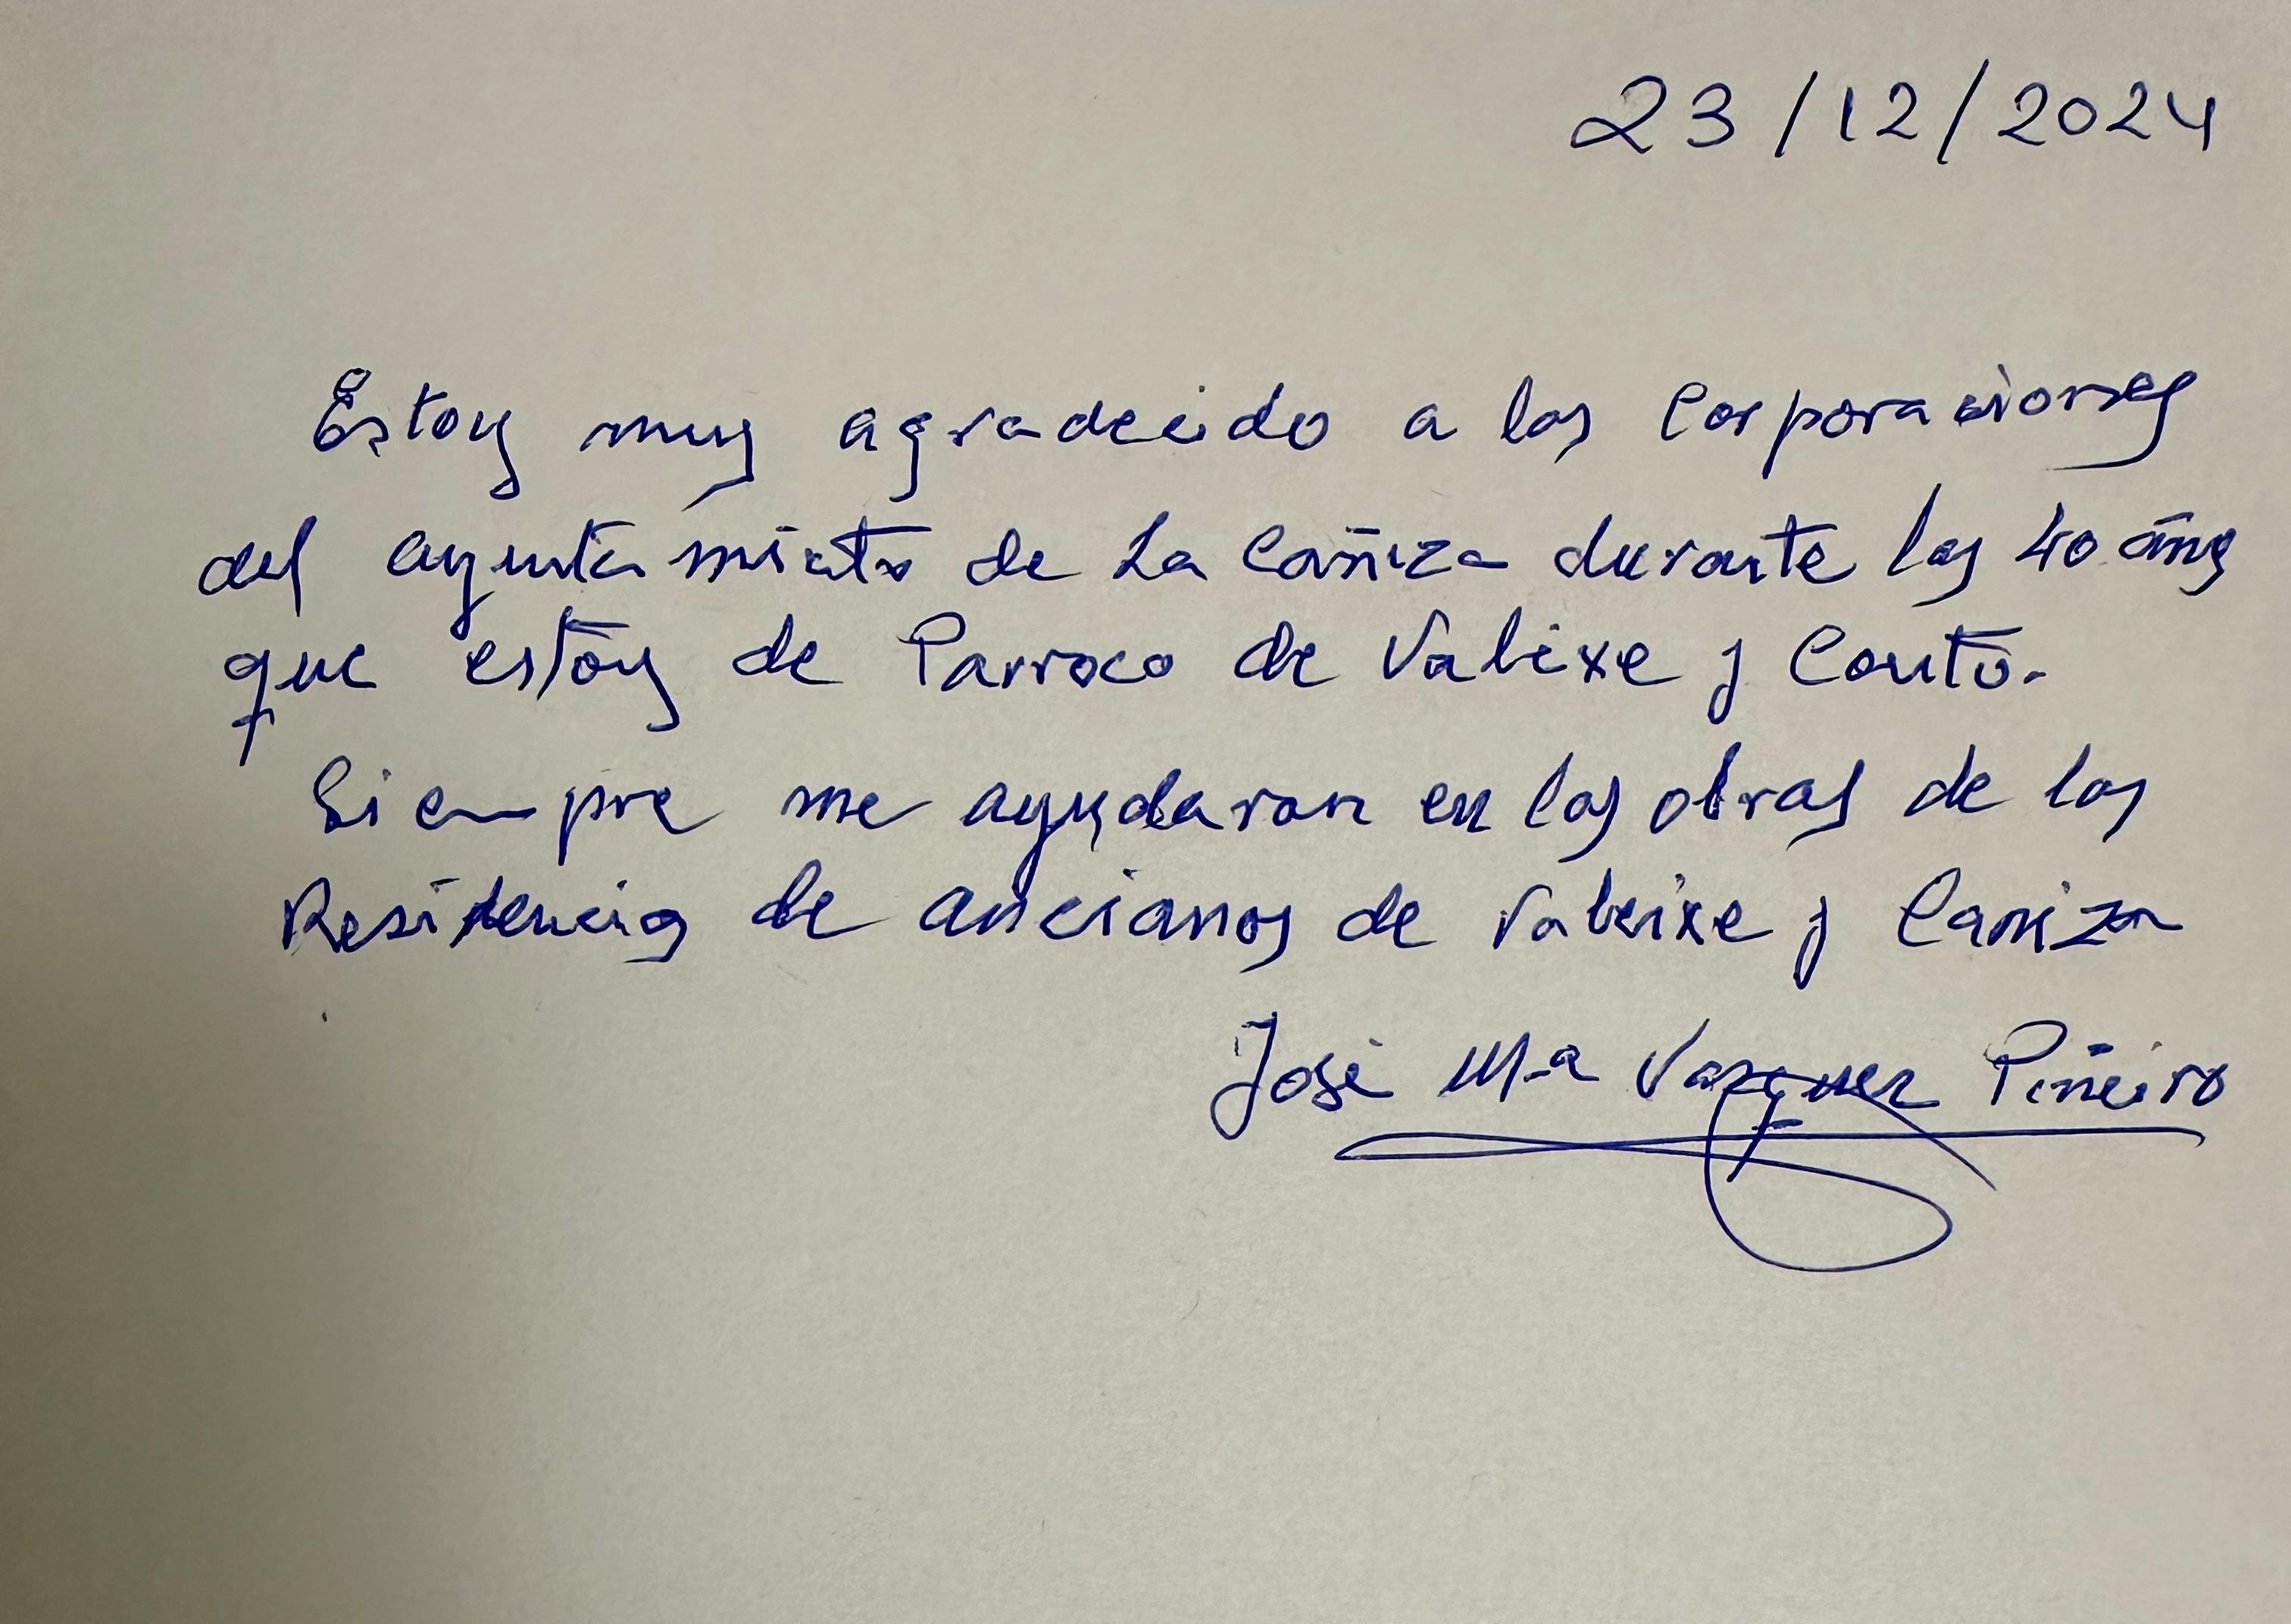 23/12/2024
Estoy muy agradecido a las Corporaciones
del ayuntamiento de La Cañiza durante los 40 años
que estoy de Parroco de Valeixe y Couto.
Siempre me ayudaron en las obras de las
Residencias de ancianos de Valeixe y Cañiza
José Mª Vazquez Piñeiro